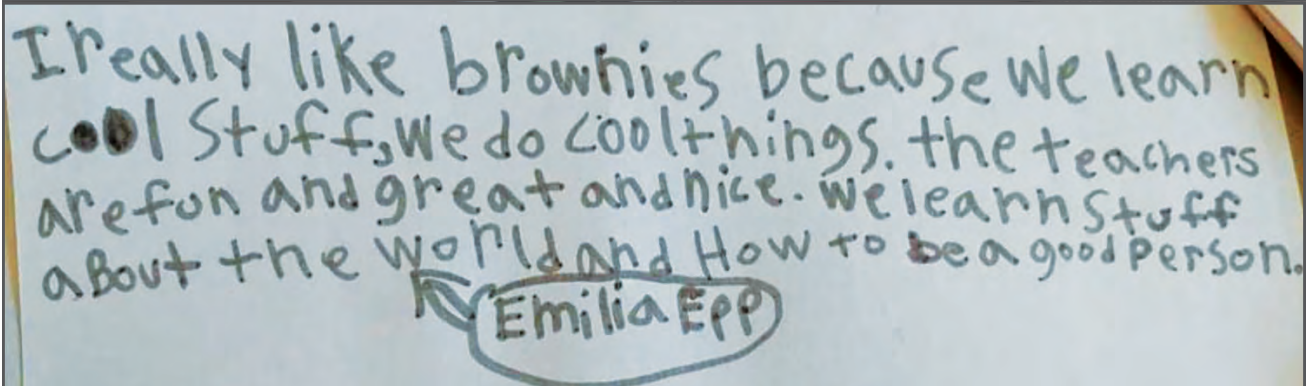 I really like brownies because we learn
cool stuff, we do cool things. the teachers
are fun and great and nice. we learn stuff
aBout the world and How to be a good person.
Emilia Epp